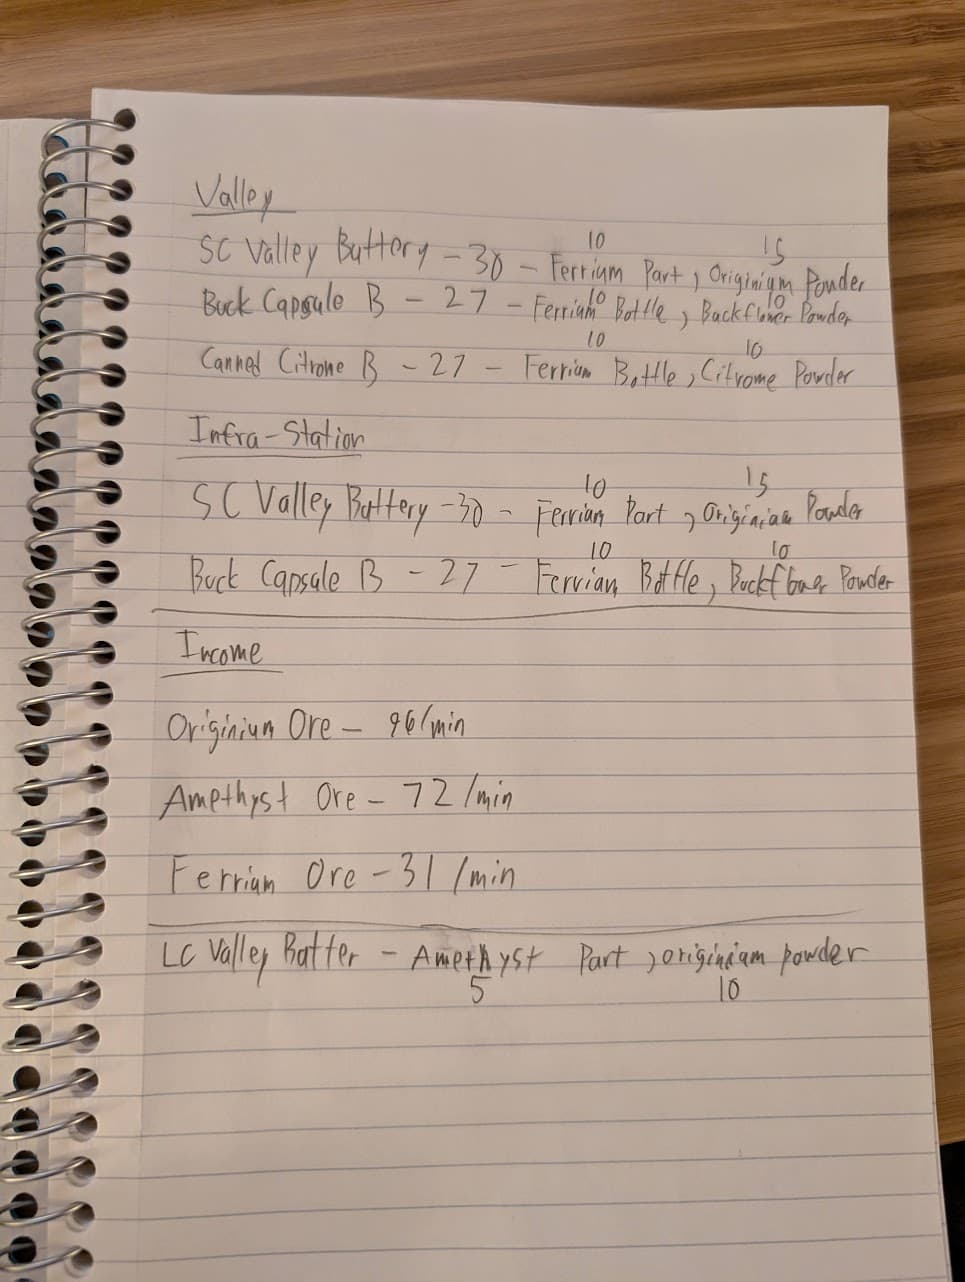 Valley
10 15
SC Valley Battery - 30 - Ferrium Part, Originium Powder
10 10
Buck Capsule B - 27 - Ferrium Bottle, Buckflower Powder
10 10
Canned Citrome B - 27 - Ferrium Bottle, Citrome Powder
Infra-Station
10 15
SC Valley Battery - 30 - Ferrium Part, Originium Powder
10 10
Buck Capsule B - 27 - Ferrium Bottle, Buckflower Powder
Income
Originium Ore - 96/min
Amethyst Ore - 72/min
Ferrium Ore - 31/min
LC Valley Batter - Amethyst Part, originium powder
5 10